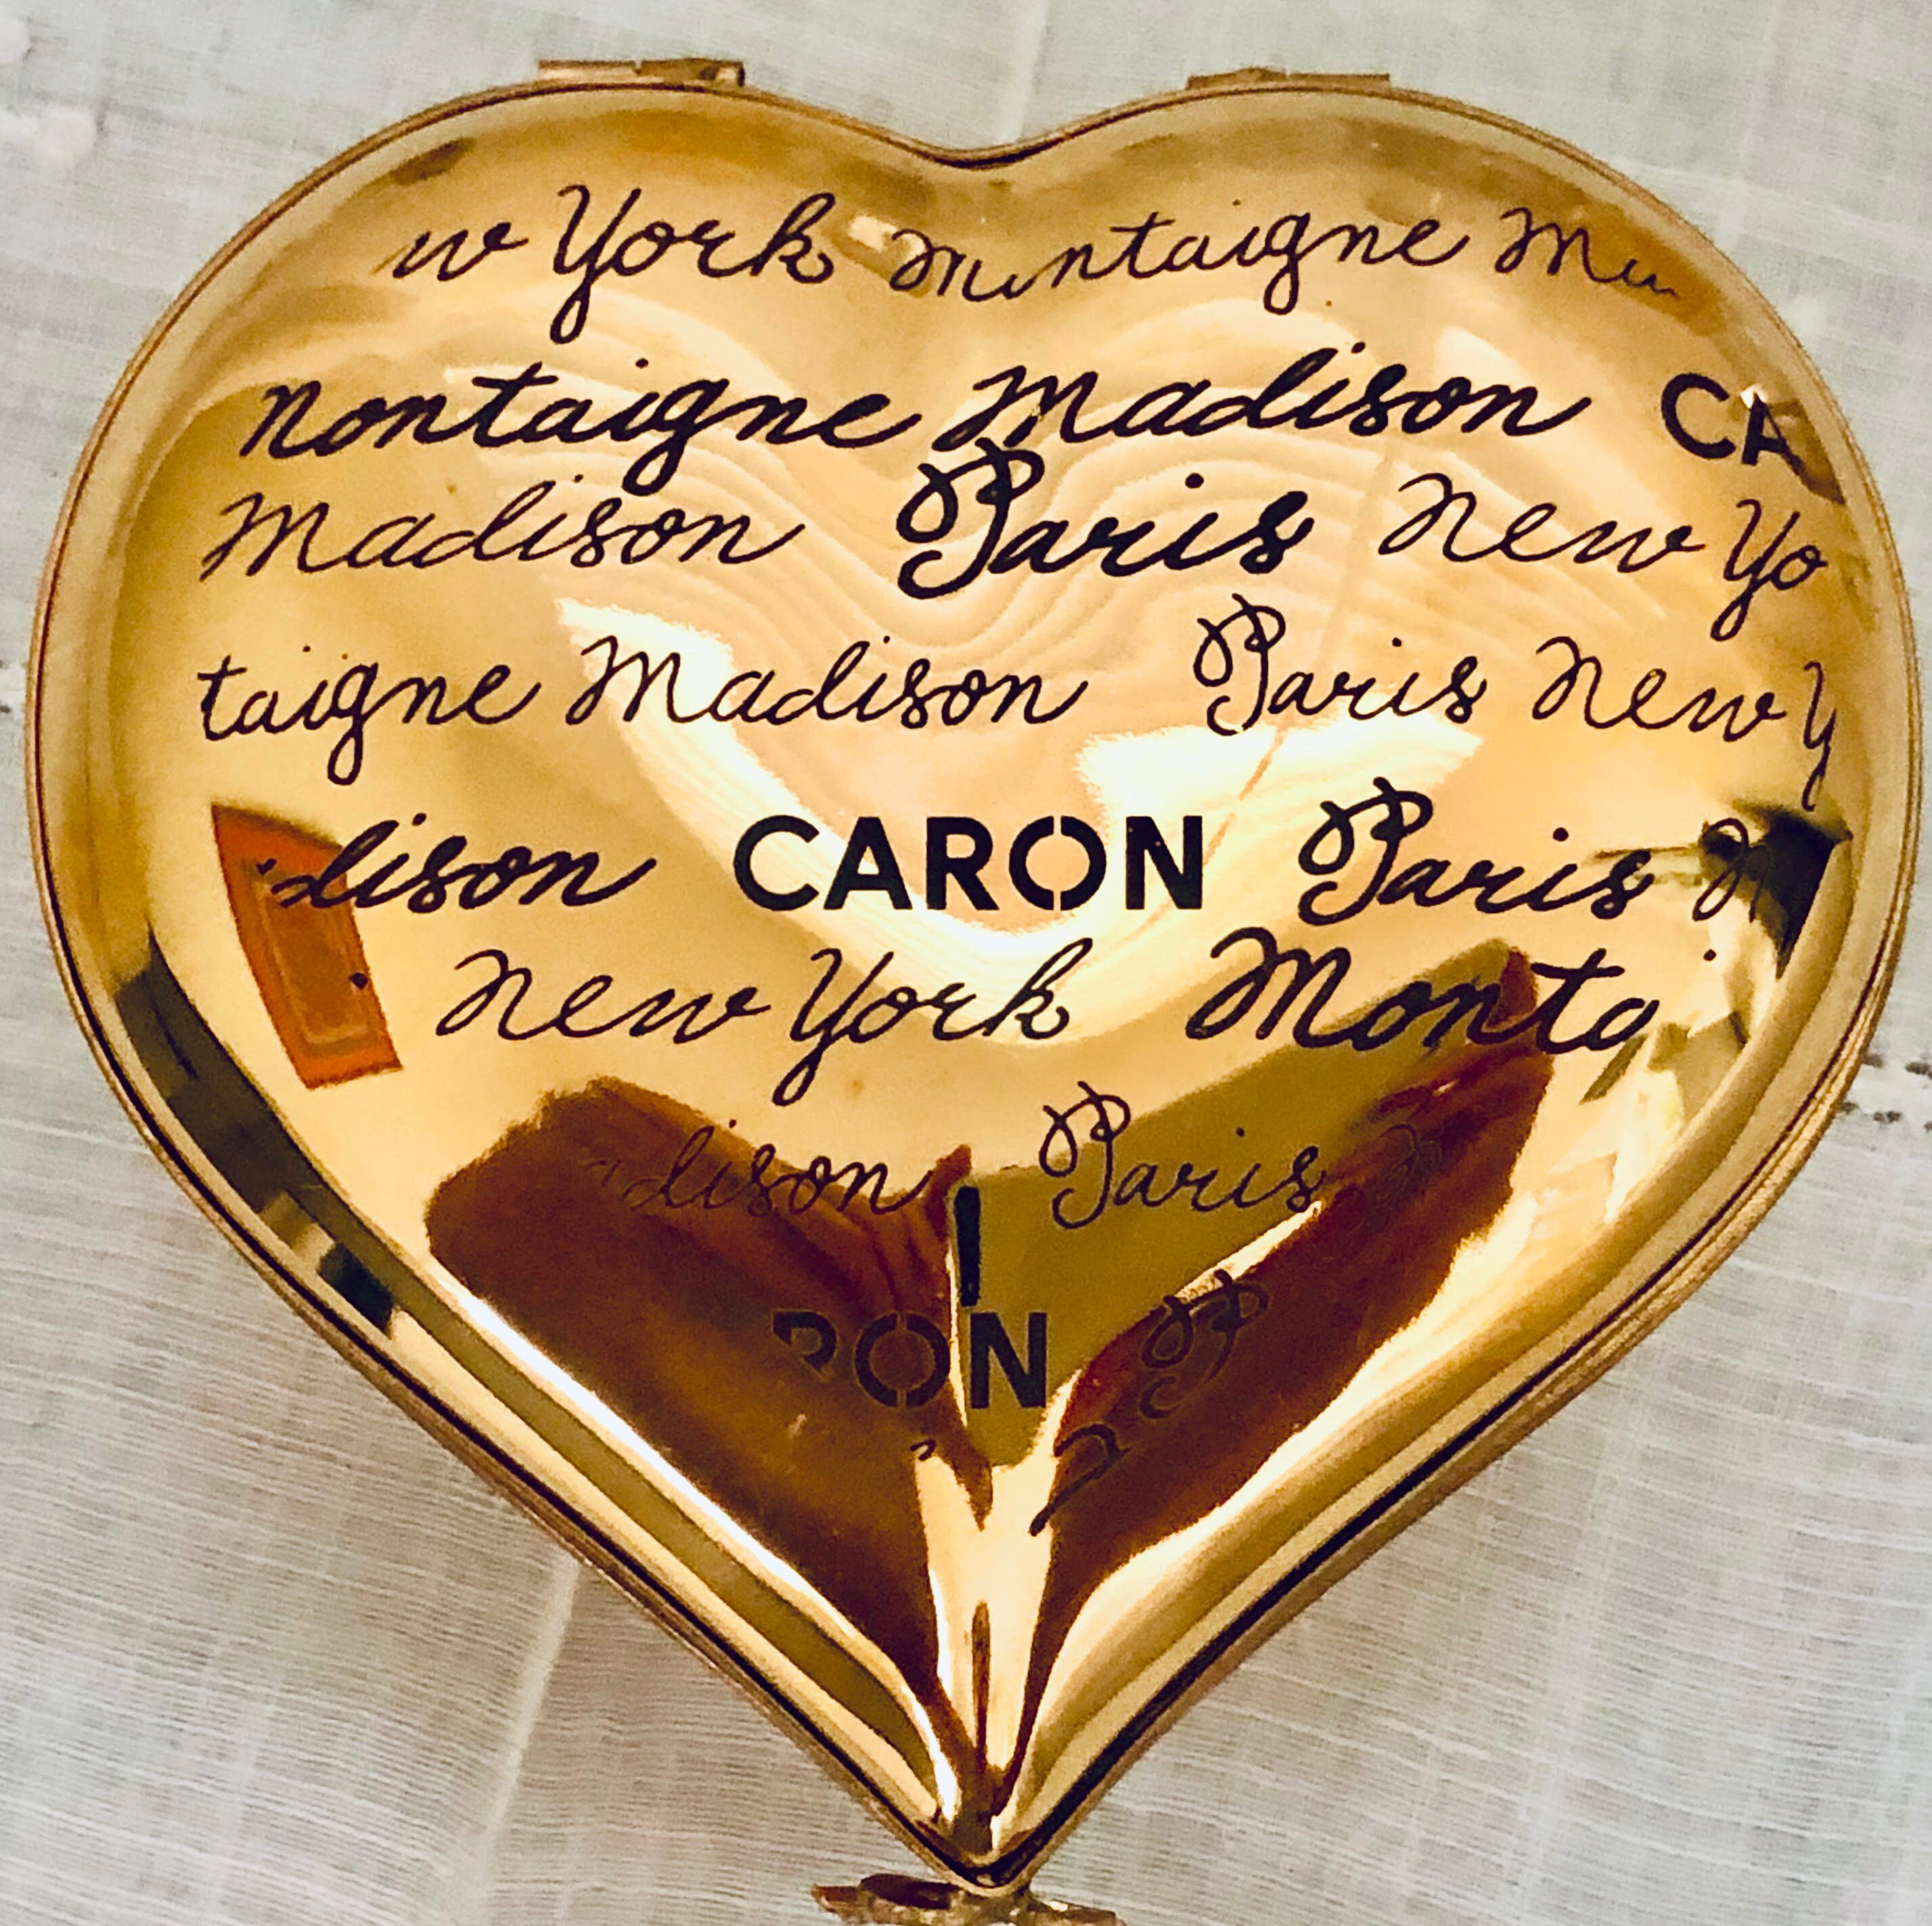 w York Montaigne M
Montaigne Madison CA
Madison Paris New Yo
taigne Madison Paris New Y
dison CARON Paris N
New York Monta
dison Paris
RON P